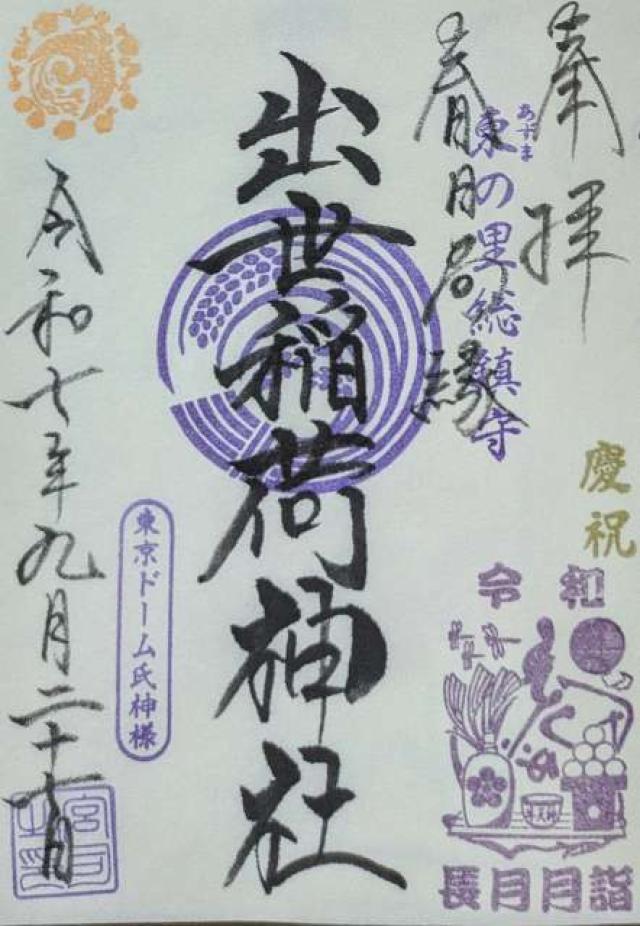 奉拝
春日局縁
東の里総鎮守
あずま
慶祝
令和
長月月詣
出世稲荷神社
東京ドーム氏神様
令和七年九月二十七日